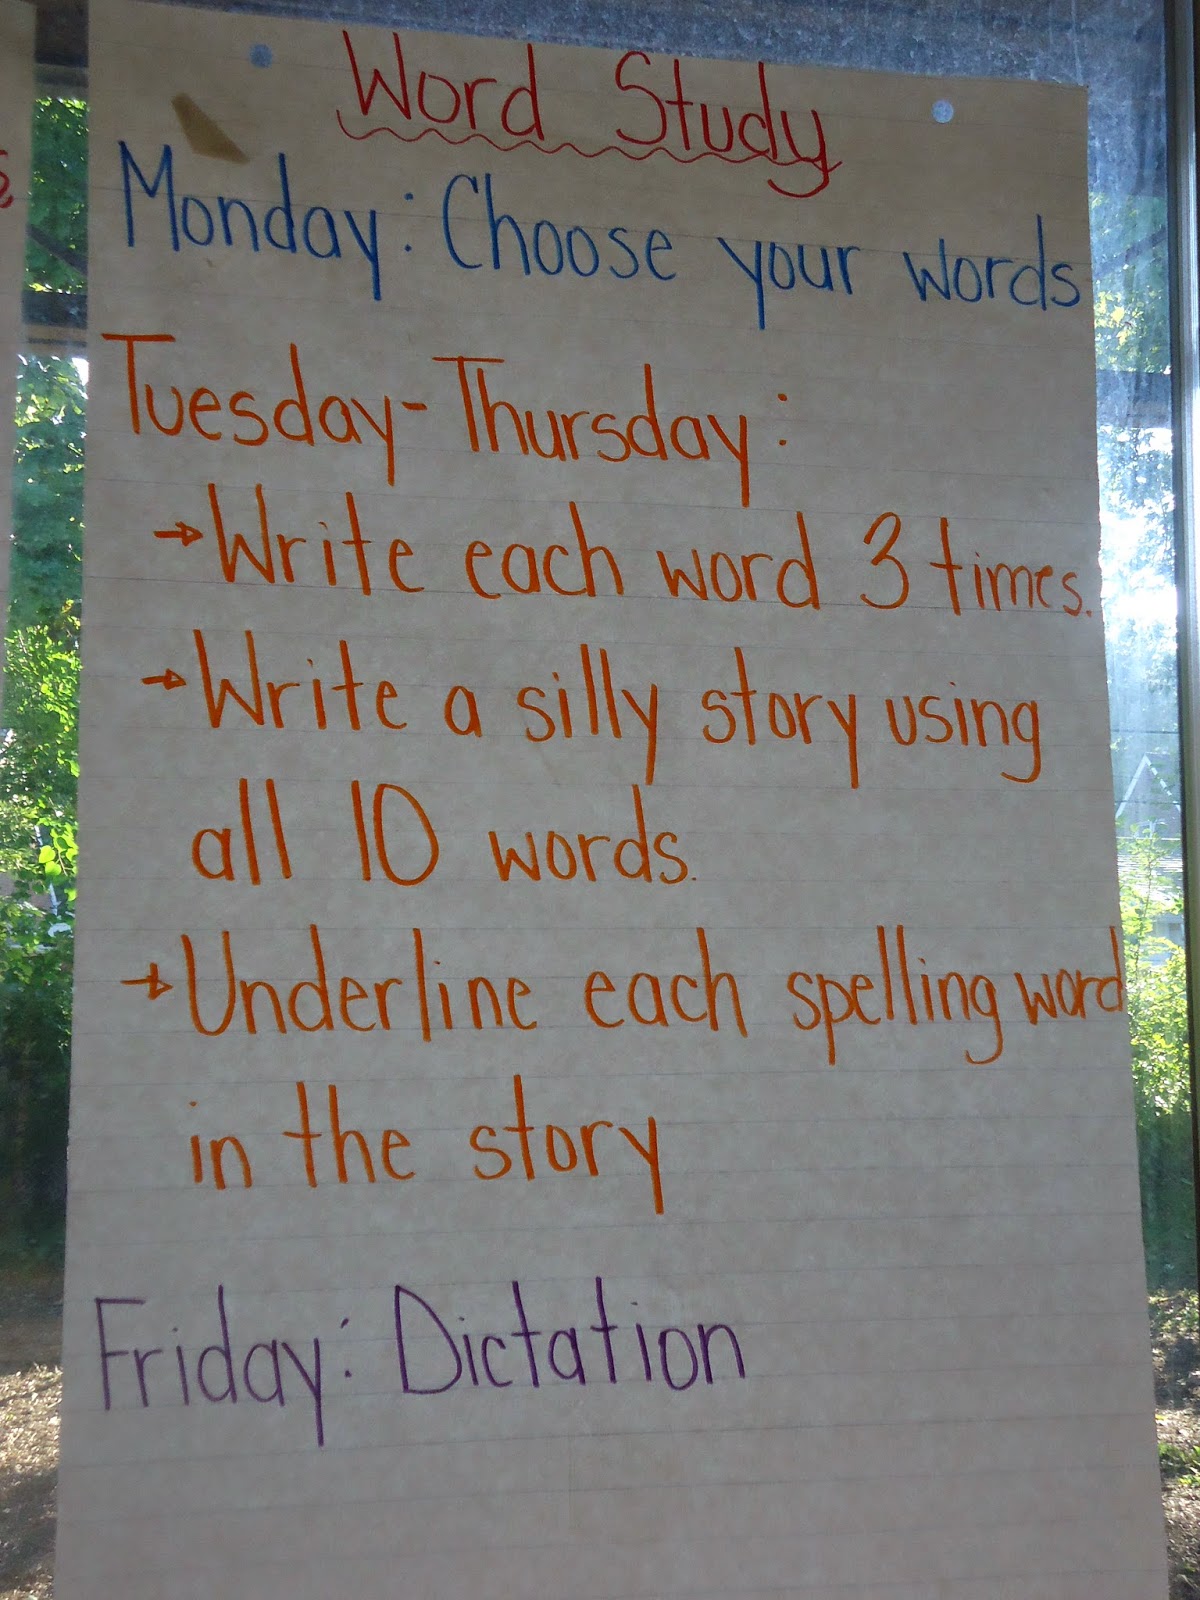 Word Study
Monday: Choose your words
Tuesday-Thursday:
→Write each word 3 times.
→Write a silly story using
all 10 words.
→Underline each spelling word
in the story
Friday: Dictation